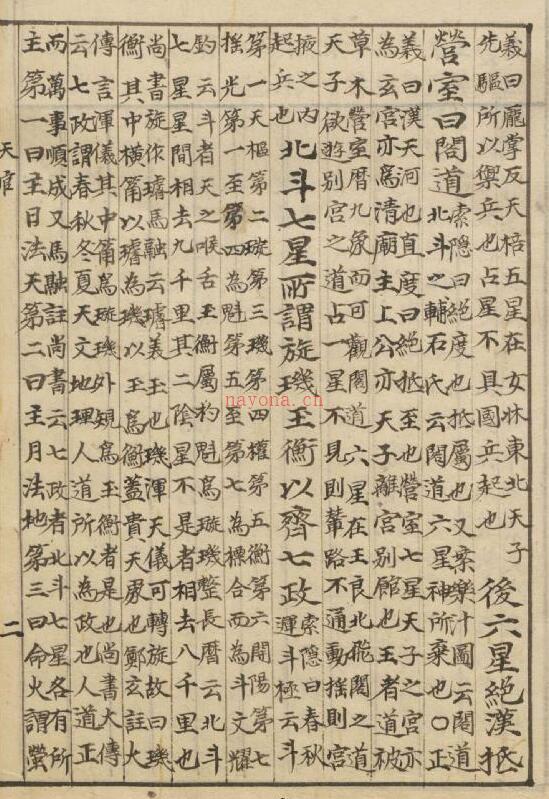 義曰龐掌反天棓五星在女牀東北天子
先驅所以禦兵也占星不具國兵起也 後六星絕漢抵
營室曰閣道 索隱曰絕度也抵屬也又案樂汁圖云閣道
北斗之輔石氏云閣道六星神所乘也〇正
義曰漢天河也直度曰絕抵至也營室七星天子之宮亦
為玄宮亦為清廟主上公亦天子離宮別館也王者道被
草木營室曆九象而可觀閣道六星在王良北飛閣之道
天子欲遊別宮之道占一星不見則輦路不通動搖則宮
掖之內
起兵也 北斗七星所謂旋璣玉衡以齊七政 索隱曰春秋
運斗極云斗
第一天樞第二璇第三璣第四權第五衡第六開陽第七
搖光第一至第四為魁第五至第七為標合而為斗文耀
鈞云斗者天之喉舌玉衡屬杓魁為璇璣整長曆云北斗
七星星間相去九千里其二陰星不是者相去八千里也
尚書旋作璿馬融云璿義玉也璣渾天儀可轉旋故曰璣
衡其中橫筩以璿為璣以玉為衡蓋貴天象也鄭玄註大
傳言渾儀其中筩為璇璣外規為玉衡者是也尚書大傳
云七政謂春秋冬夏天文地理人道所以為政也人道正
而萬事順成又馬融註尚書云七政者北斗七星各有所
主第一曰主日法天第二曰主月法地第三曰命火謂熒
天官
二
nayona.cn